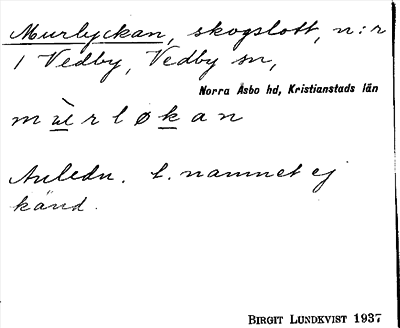 Murlyckan, skogslott, n:r
1 Vedby, Vedby sn,
Norra Åsbo hd, Kristianstads län
m ù r l ø k a n
Anledn. t. namnet ej
känd.
BIRGIT LUNDKVIST 1937